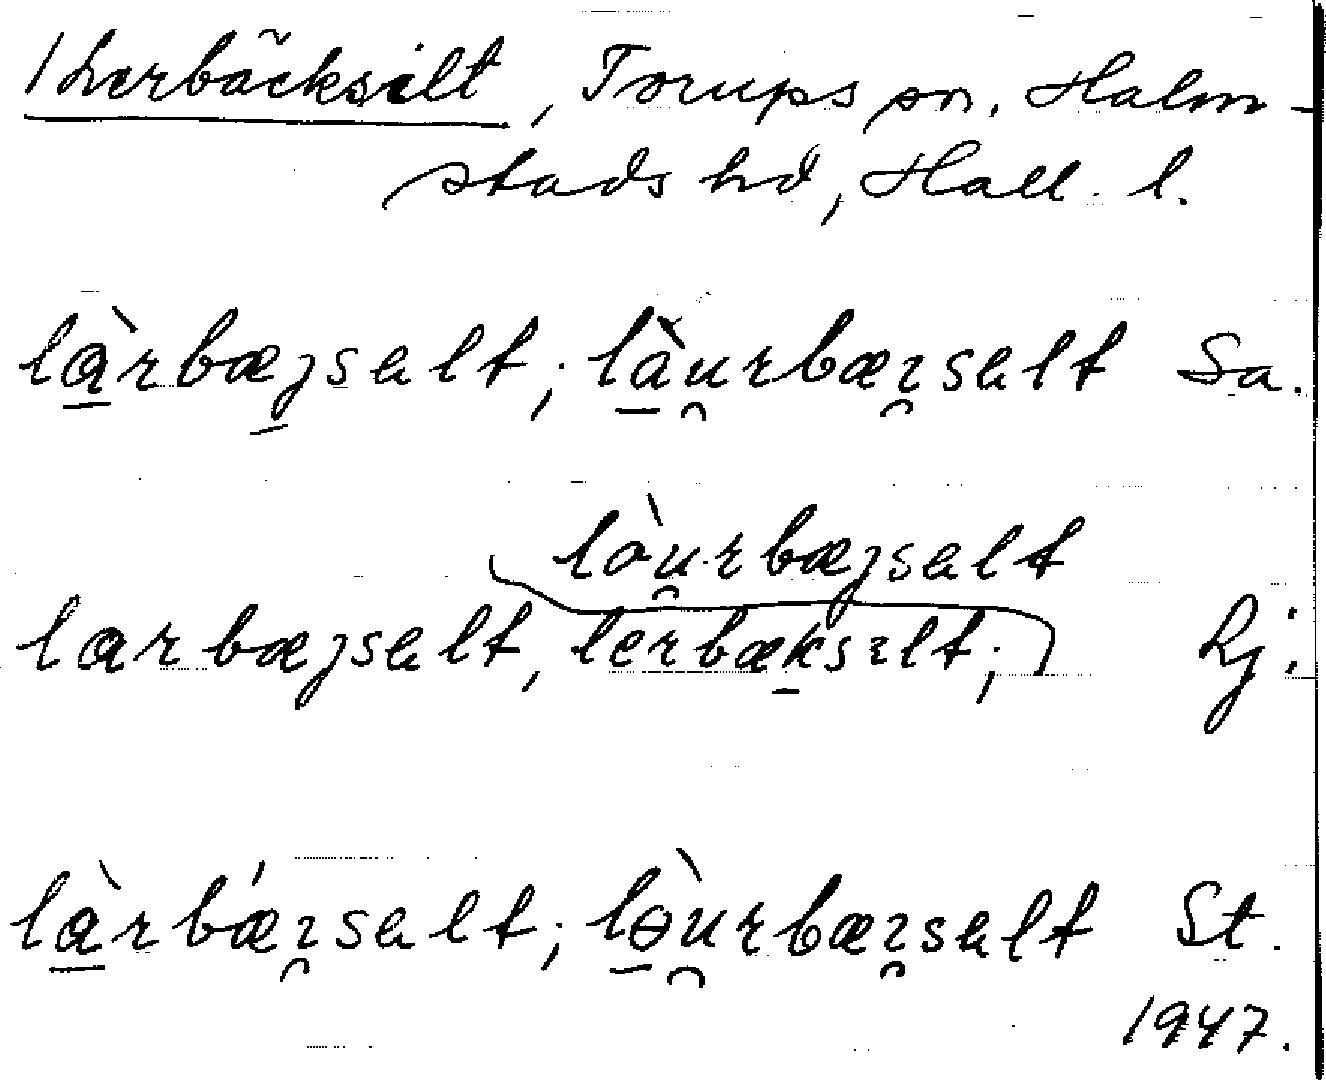 /Lerbäcksilt, Torups sn, Halm-
stads hd, Hall. l.
là̱rbæȷ̱selt; là̱u̯rbæɿ̯selt Sa.
lòu̯rbæȷselt
larbæȷselt, lerbæ̱ksɪlt; Lj.
là̱rbǽɿ̯selt; lò̱u̯rbæɿ̯selt St.
1947.